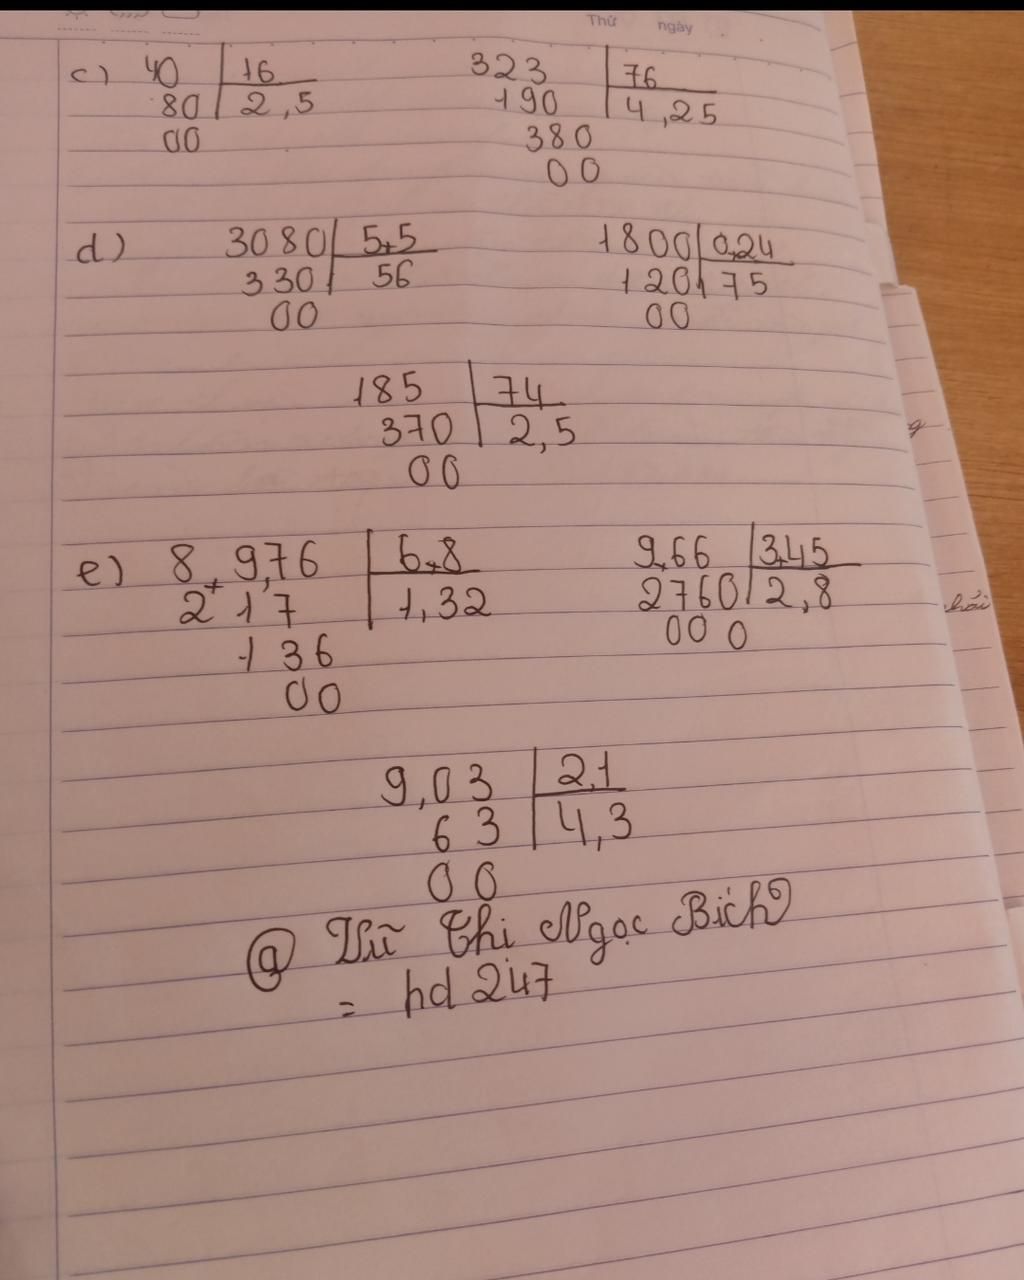 Thứ ngày
c) 40 16 323 76
80 2,5 190 4,25
00 380
00
d) 3080 5,5 1800 0,24
330 56 120 75
00 00
185 74
370 2,5
00
e) 8,9,76 6,8 9,66 3,45
217 1,32 2760 2,8
136 000
00
9,03 2,1
63 4,3
00
@ Vũ Thi Ngọc Bích
= hd 247